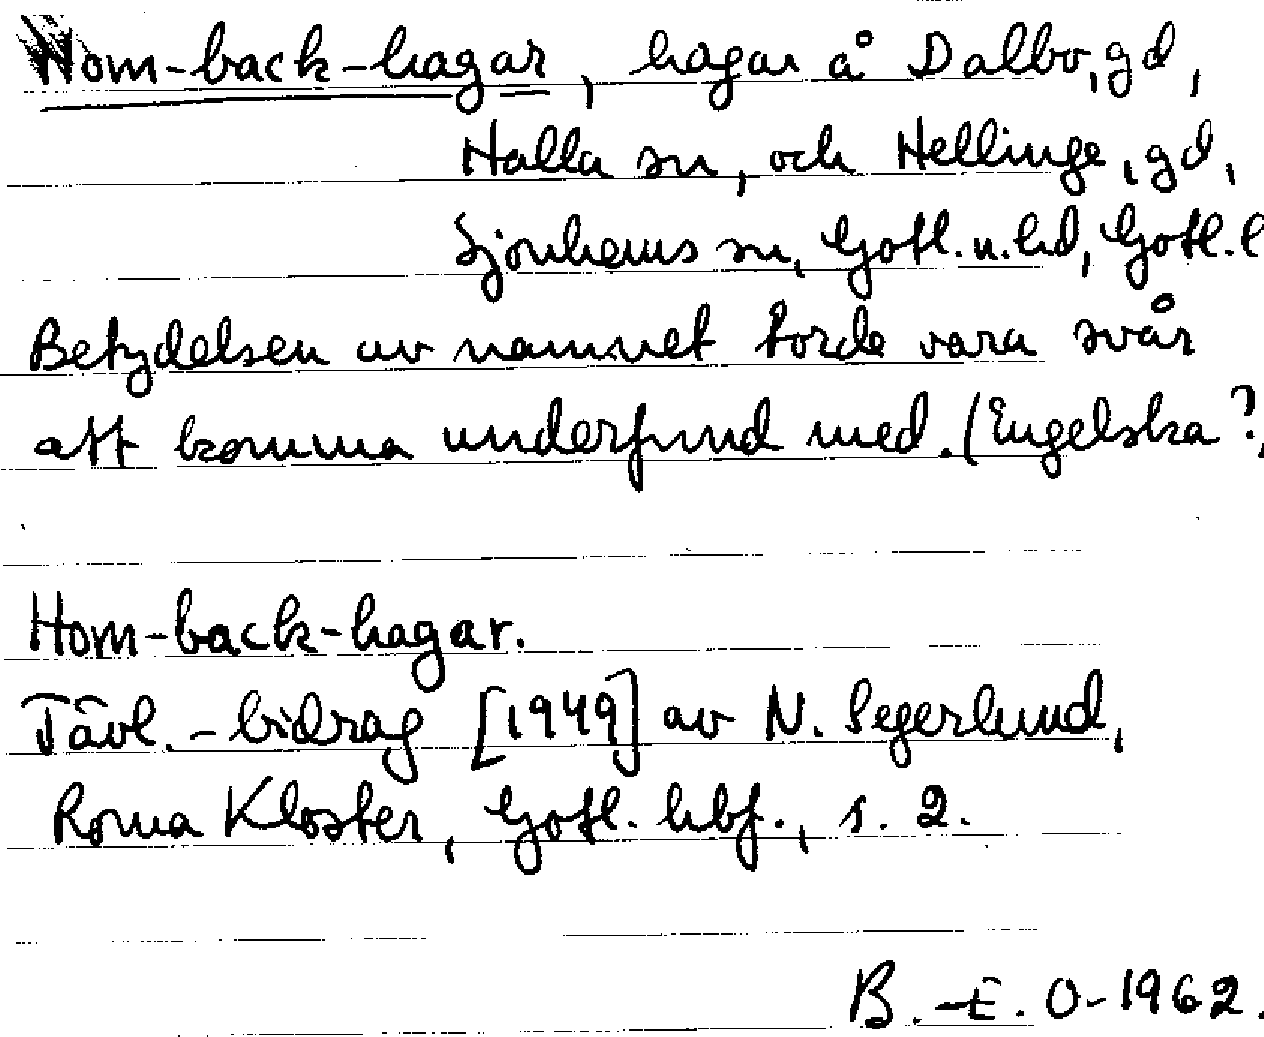 Hom-back-hagar, hagar å Dalbo, gd,
Halla sn, och Hellinge, gd,
Sjonhems sn, Gotl. n. hd, Gotl. l
Betydelsen av namnet torde vara svår
att komma underfund med. (Engelska?
Hom-back-hagar.
Tävl.-bidrag [1949] av N. Segerlund,
Roma Kloster, Gotl. hbf., s. 2.
B.-E. O-1962.